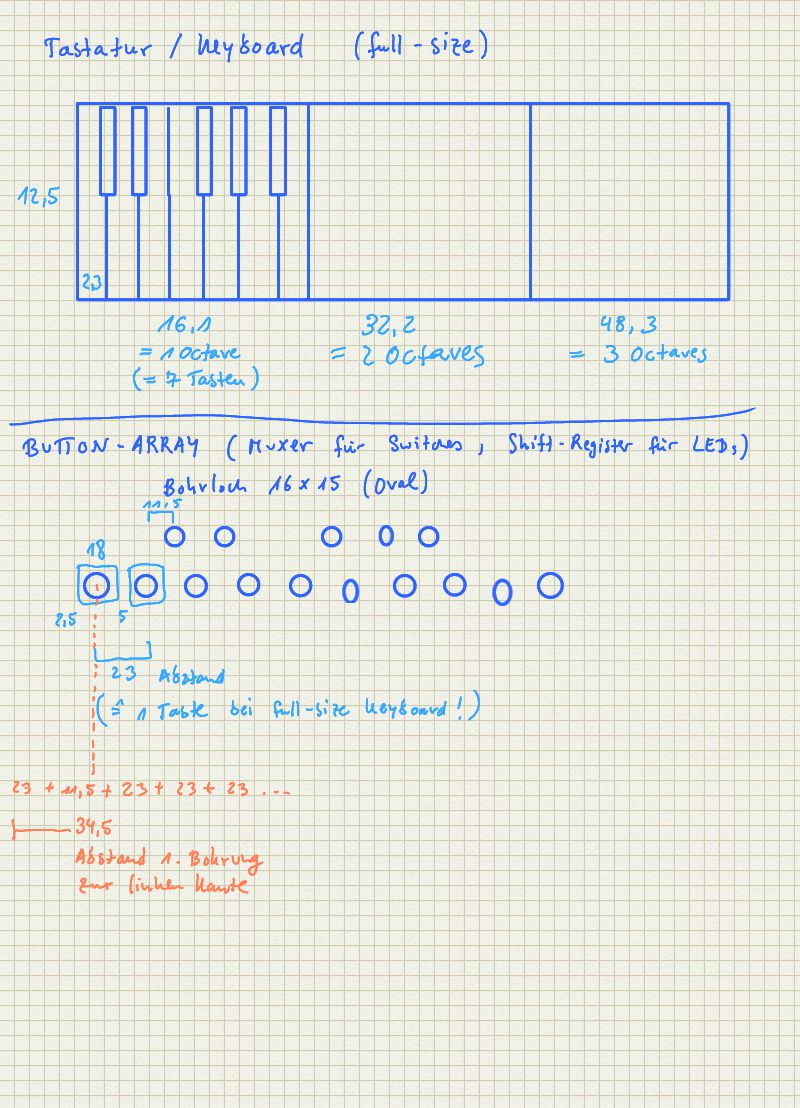 Tastatur / Keyboard (full-size)
12,5
2,3
16,1
= 1 Octave
(= 7 Tasten)
32,2
= 2 Octaves
48,3
= 3 Octaves
BUTTON-ARRAY (Muxer für Switches, Shift-Register für LEDs)
Bohrloch 16 x 15 (Oval)
11,5
18
2,5
5
23 Abstand
(≙ 1 Taste bei full-size Keyboard!)
23 + 11,5 + 23 + 23 + 23 ...
34,5
Abstand 1. Bohrung
zur linken Kante